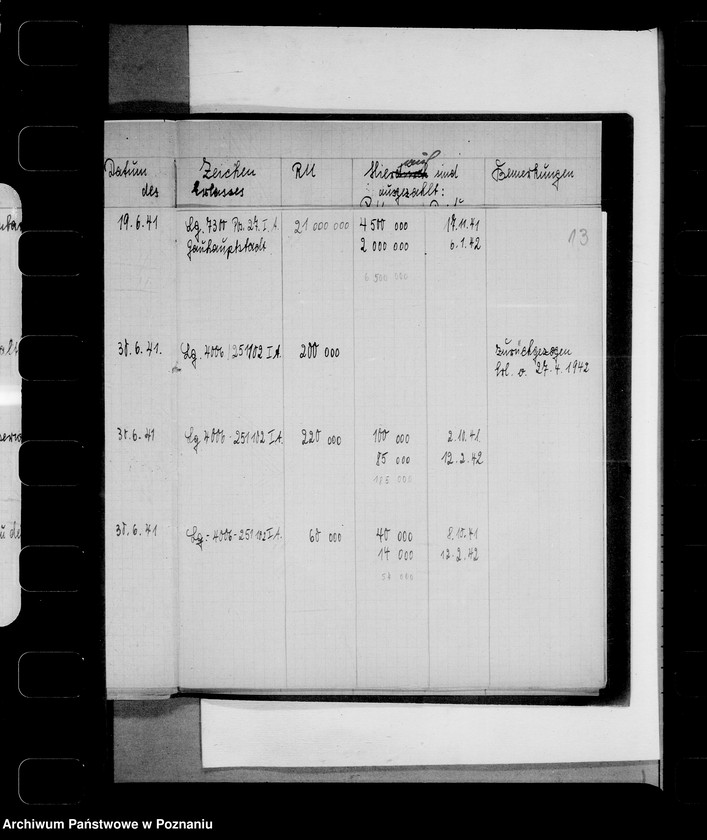 Datum Zeichen RM Hier auf und Bemerkungen
des Erlasses ausgezahlt:
19.6.41 Lg. 7300 Po. 27. I.A. 21 000 000 4 500 000 17.11.41
Gauhauptstadt 2 000 000 6.1.42 13
6 500 000
30.6.41. Lg. 4006/251102 I A. 200 000 zurückgezogen
Erl. v. 27.4.1942
30.6.41 Lg 4006-251102 I A. 220 000 100 000 2.10.41.
85 000 12.2.42
185 000
30.6.41 Lg.-4006-251102 I A. 60 000 40 000 8.10.41
14 000 12.2.42
54 000
Archiwum Państwowe w Poznaniu